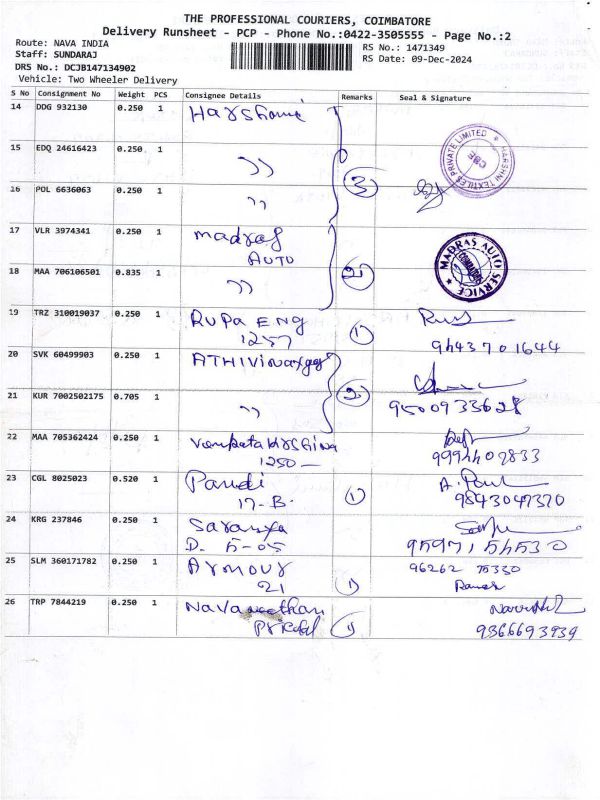 THE PROFESSIONAL COURIERS, COIMBATORE
Delivery Runsheet - PCP - Phone No.:0422-3505555 - Page No.:2
Route: NAVA INDIA
Staff: SUNDARAJ
DRS No.: DCJB147134902
Vehicle: Two Wheeler Delivery
RS No.: 1471349
RS Date: 09-Dec-2024
S No Consignment No Weight PCS Consignee Details Remarks Seal & Signature
14 DDG 932130 0.250 1 Harshani
15 EDQ 24616423 0.250 1 ,,
3
HARSHNI TEXTILES PRIVATE LIMITED
CBE
16 POL 6636063 0.250 1 ,,
17 VLR 3974341 0.250 1 madras
AUTO
2
MADRAS AUTO SERVICE
COIMBATORE
18 MAA 706106501 0.835 1 ,,
19 TRZ 310019037 0.250 1 RUPA ENG
1257 1
94437 01644
20 SVK 60499903 0.250 1 ATHIVinayaga
2
21 KUR 7002502175 0.705 1 ,, 9500933628
22 MAA 705362424 0.250 1 Venkatakrishna
1250 9994402833
23 CGL 8025023 0.520 1 Pandi A. Paul
17-B. 1 9843047370
24 KRG 237846 0.250 1 Saranya
D. 5-05 9597154530
25 SLM 360171782 0.250 1 Armour 96262 75330
21 1
26 TRP 7844219 0.250 1 Navaneethan
1 9366693939